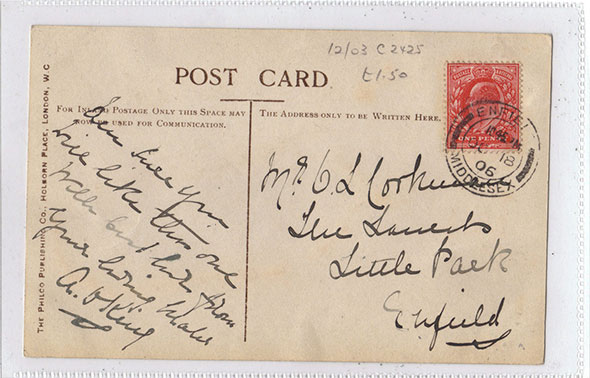 12/03 C2425
£1.50
POST CARD.
FOR INLAND POSTAGE ONLY THIS SPACE MAY
NOW BE USED FOR COMMUNICATION.
THE ADDRESS ONLY TO BE WRITTEN HERE.
THE PHILCO PUBLISHING CO., HOLBORN PLACE, LONDON, W.C.
sure you
like this one
from
your loving
A. King
ONE PENNY
ENFI
18
06
MIDDLESEX
Mr C L
The
Little Park
Enfield